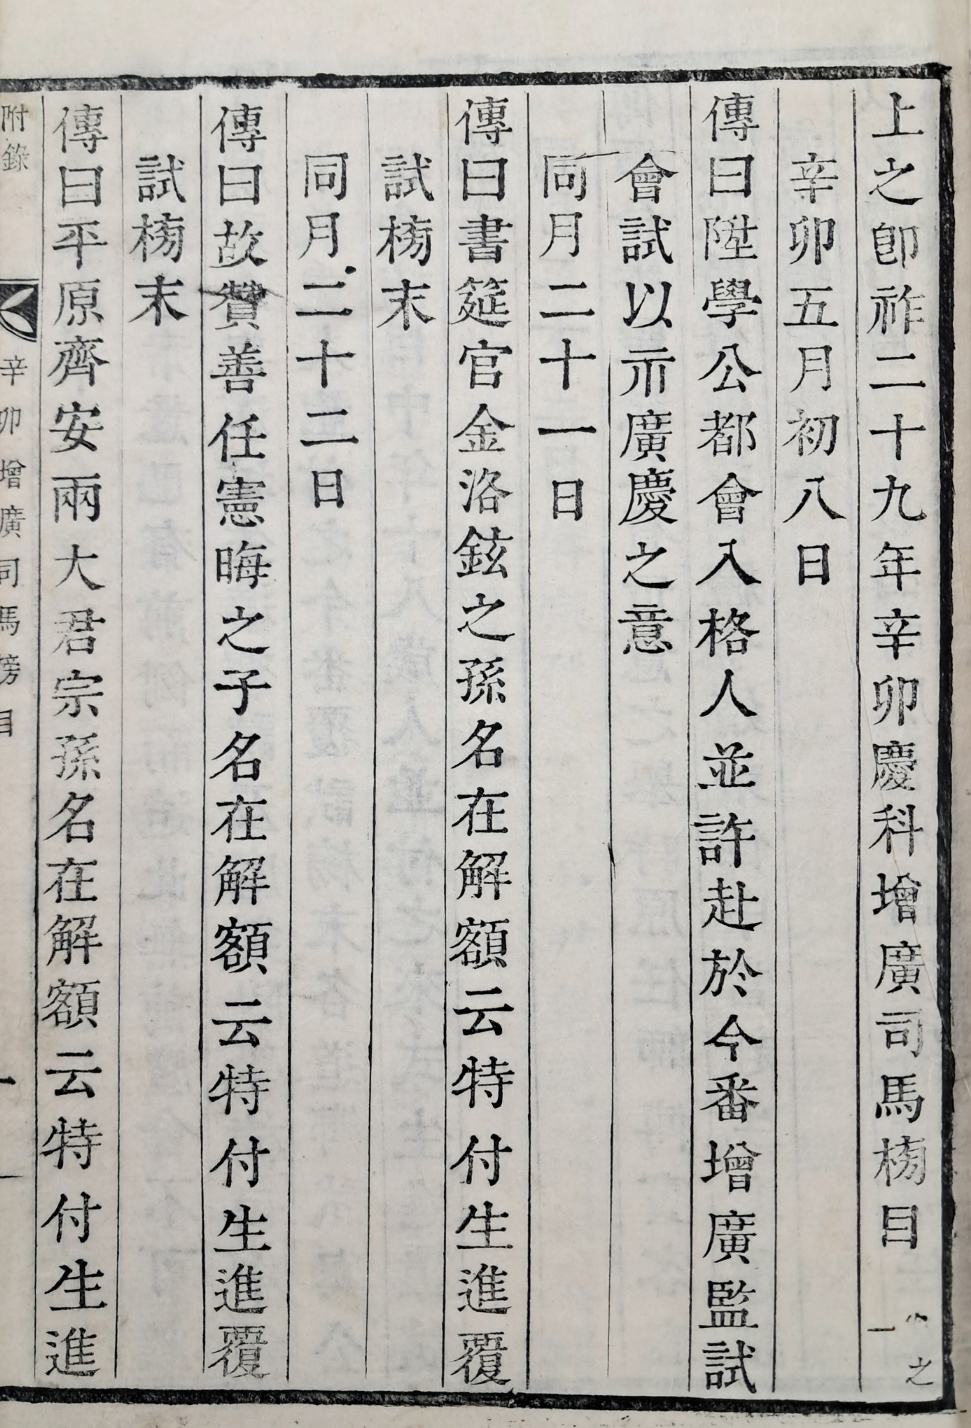 上之卽祚二十九年辛卯慶科增廣司馬榜目 一 之
辛卯五月初八日
傳曰陞學公都會入格人並許赴於今番增廣監試
會試以示廣慶之意
同月二十一日
傳曰書筵官金洛鉉之孫名在解額云特付生進覆
試榜末
同月二十二日
傳曰故贊善任憲晦之子名在解額云特付生進覆
試榜末
傳曰平原齊安兩大君宗孫名在解額云特付生進
附錄 辛卯增廣司馬榜目 一